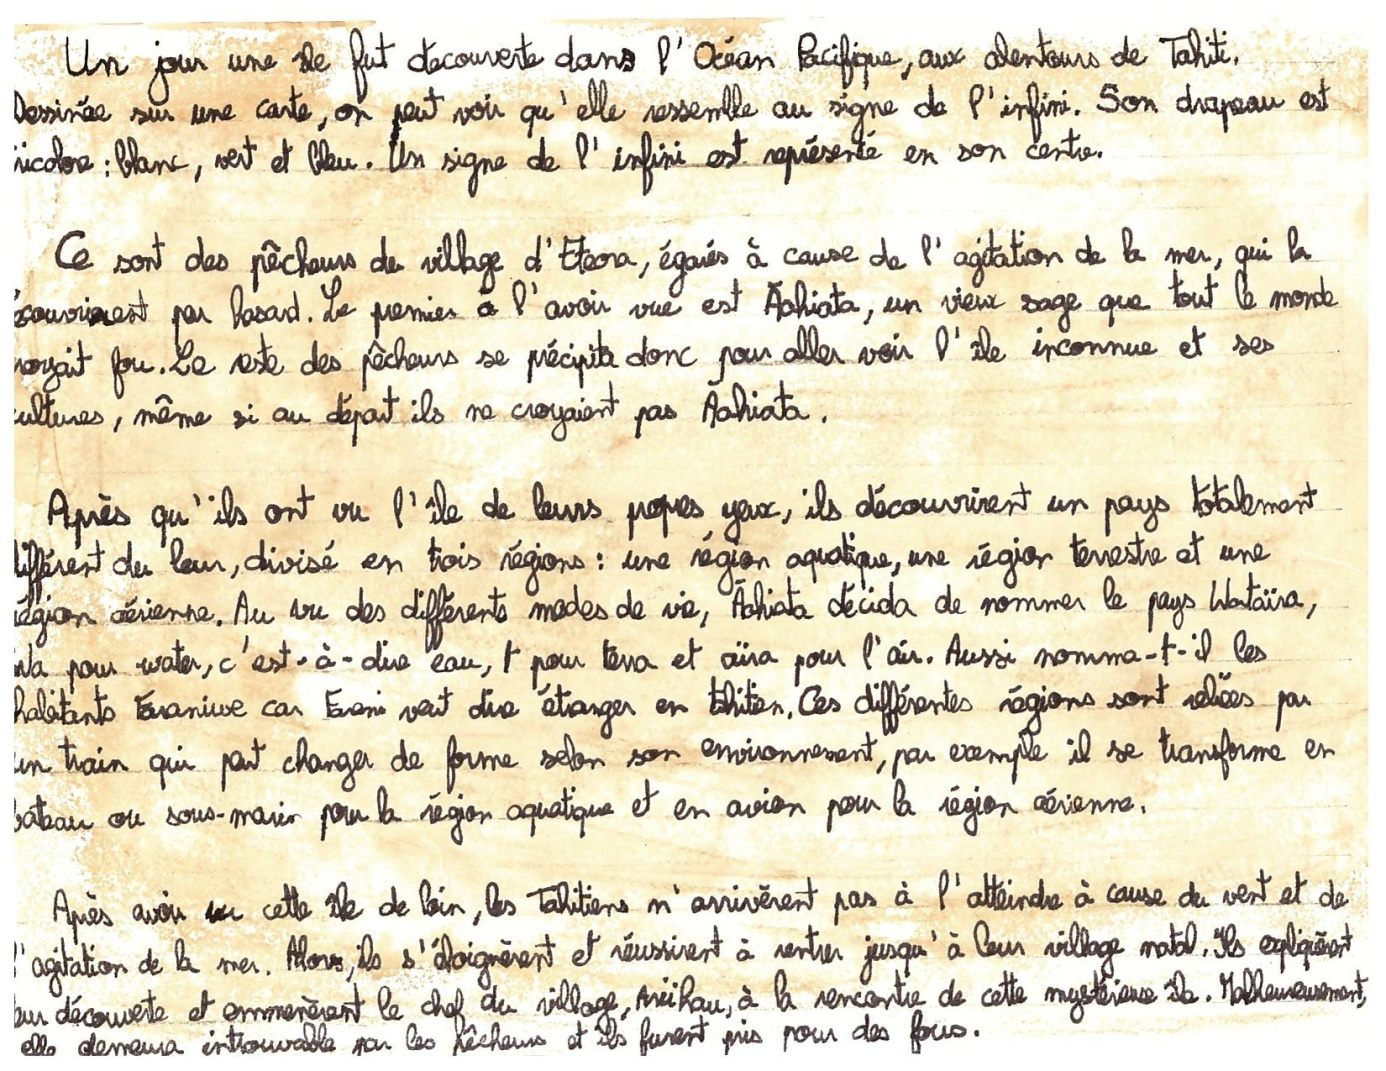 Un jour une île fut découverte dans l'Océan Pacifique, aux alentours de Tahiti.
Dessinée sur une carte, on peut voir qu'elle ressemble au signe de l'infini. Son drapeau est
ricolore : blanc, vert et bleu. Un signe de l'infini est représenté en son centre.
Ce sont des pêcheurs du village d'Eteora, égarés à cause de l'agitation de la mer, qui la
écouvrirent par hasard. Le premier à l'avoir vue est Āahiata, un vieux sage que tout le monde
royait fou. Le reste des pêcheurs se précipita donc pour aller voir l'île inconnue et ses
ultures, même si au départ ils ne croyaient pas Āahiata.
Après qu'ils ont vu l'île de leurs propres yeux, ils découvrirent un pays totalement
différent du leur, divisé en trois régions : une région aquatique, une région terrestre et une
région aérienne. Au vu des différents modes de vie, Āahiata décida de nommer le pays Wataïra,
wa pour water, c'est-à-dire eau, t pour terra et aïra pour l'air. Aussi nomma-t-il les
habitants car veut dire étranger en tahitien. Ces différentes régions sont reliées par
un train qui peut changer de forme selon son environnement, par exemple il se transforme en
bateau ou sous-marin pour la région aquatique et en avion pour la région aérienne.
Après avoir vu cette île de loin, les Tahitiens n'arrivèrent pas à l'atteindre à cause du vent et de
l'agitation de la mer. Alors, ils s'éloignèrent et réussirent à rentrer jusqu'à leur village natal. Ils expliquèrent
eur découverte et emmenèrent le chef du village, Ariihau, à la rencontre de cette mystérieuse île. Malheureusement,
elle demeura introuvable par les pêcheurs et ils furent pris pour des fous.